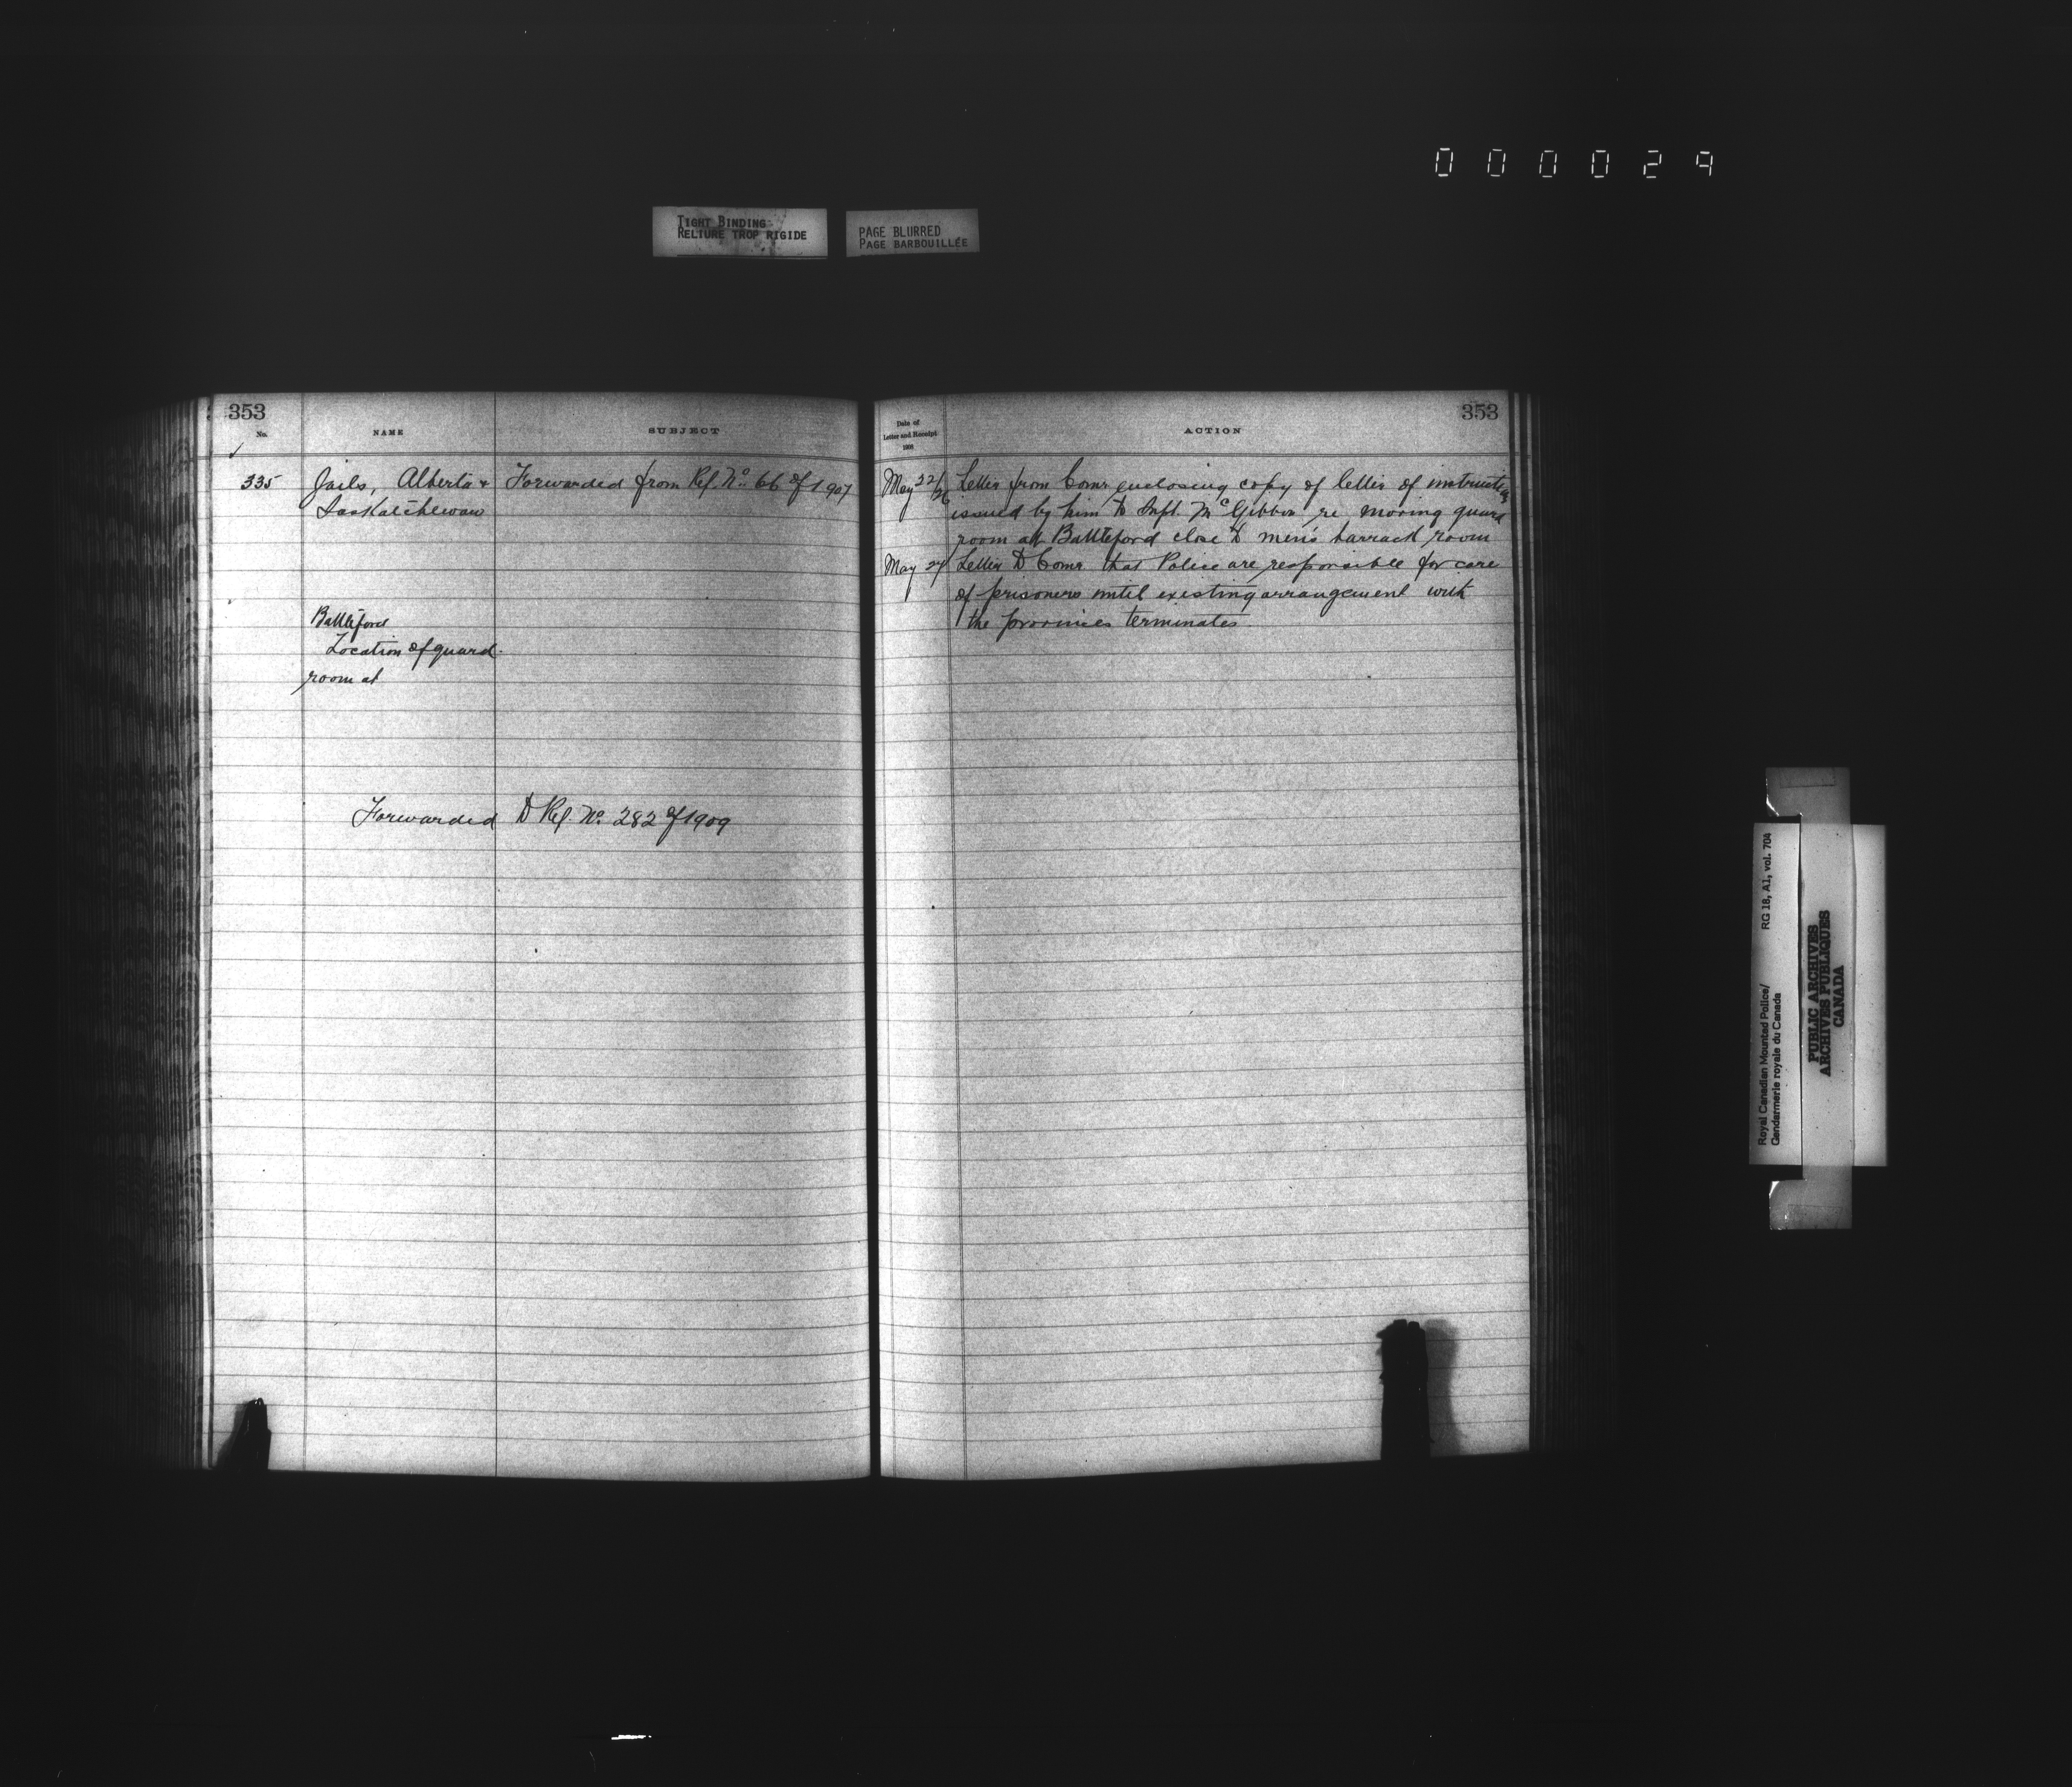 000029
TIGHT BINDING
RELIURE TROP RIGIDE
PAGE BLURRED
PAGE BARBOUILLÉE
353
No.
NAME
SUBJECT
335
Jails, Alberta &
Saskatchewan
Forwarded from Ref. No. 66 of 1907
Battleford
Location of guard
room at
Forwarded to Ref. No. 282 of 1909
353
Date of
Letter and Receipt
ACTION
May 22/26 Letter from Comr. enclosing copy of letter of instruction
issued by him to Supt. McGibbon re moving guard
room at Battleford close to men's barrack room
May 27 Letter to Comr. that Police are responsible for care
of prisoners until existing arrangement with
the provinces terminates.
Royal Canadian Mounted Police/
Gendarmerie royale du Canada
RG 18, A1, vol. 704
PUBLIC ARCHIVES
ARCHIVES PUBLIQUES
CANADA